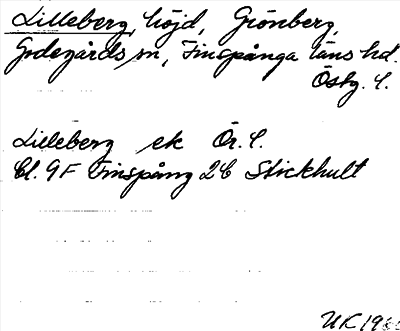 Lilleberg, höjd, Grönberg,
Godegårds sn, Finspånga läns hd.
Östg. l.
Lilleberg ek Ör. l.
Bl. 9F Finspång 2c Stickhult
UK 198